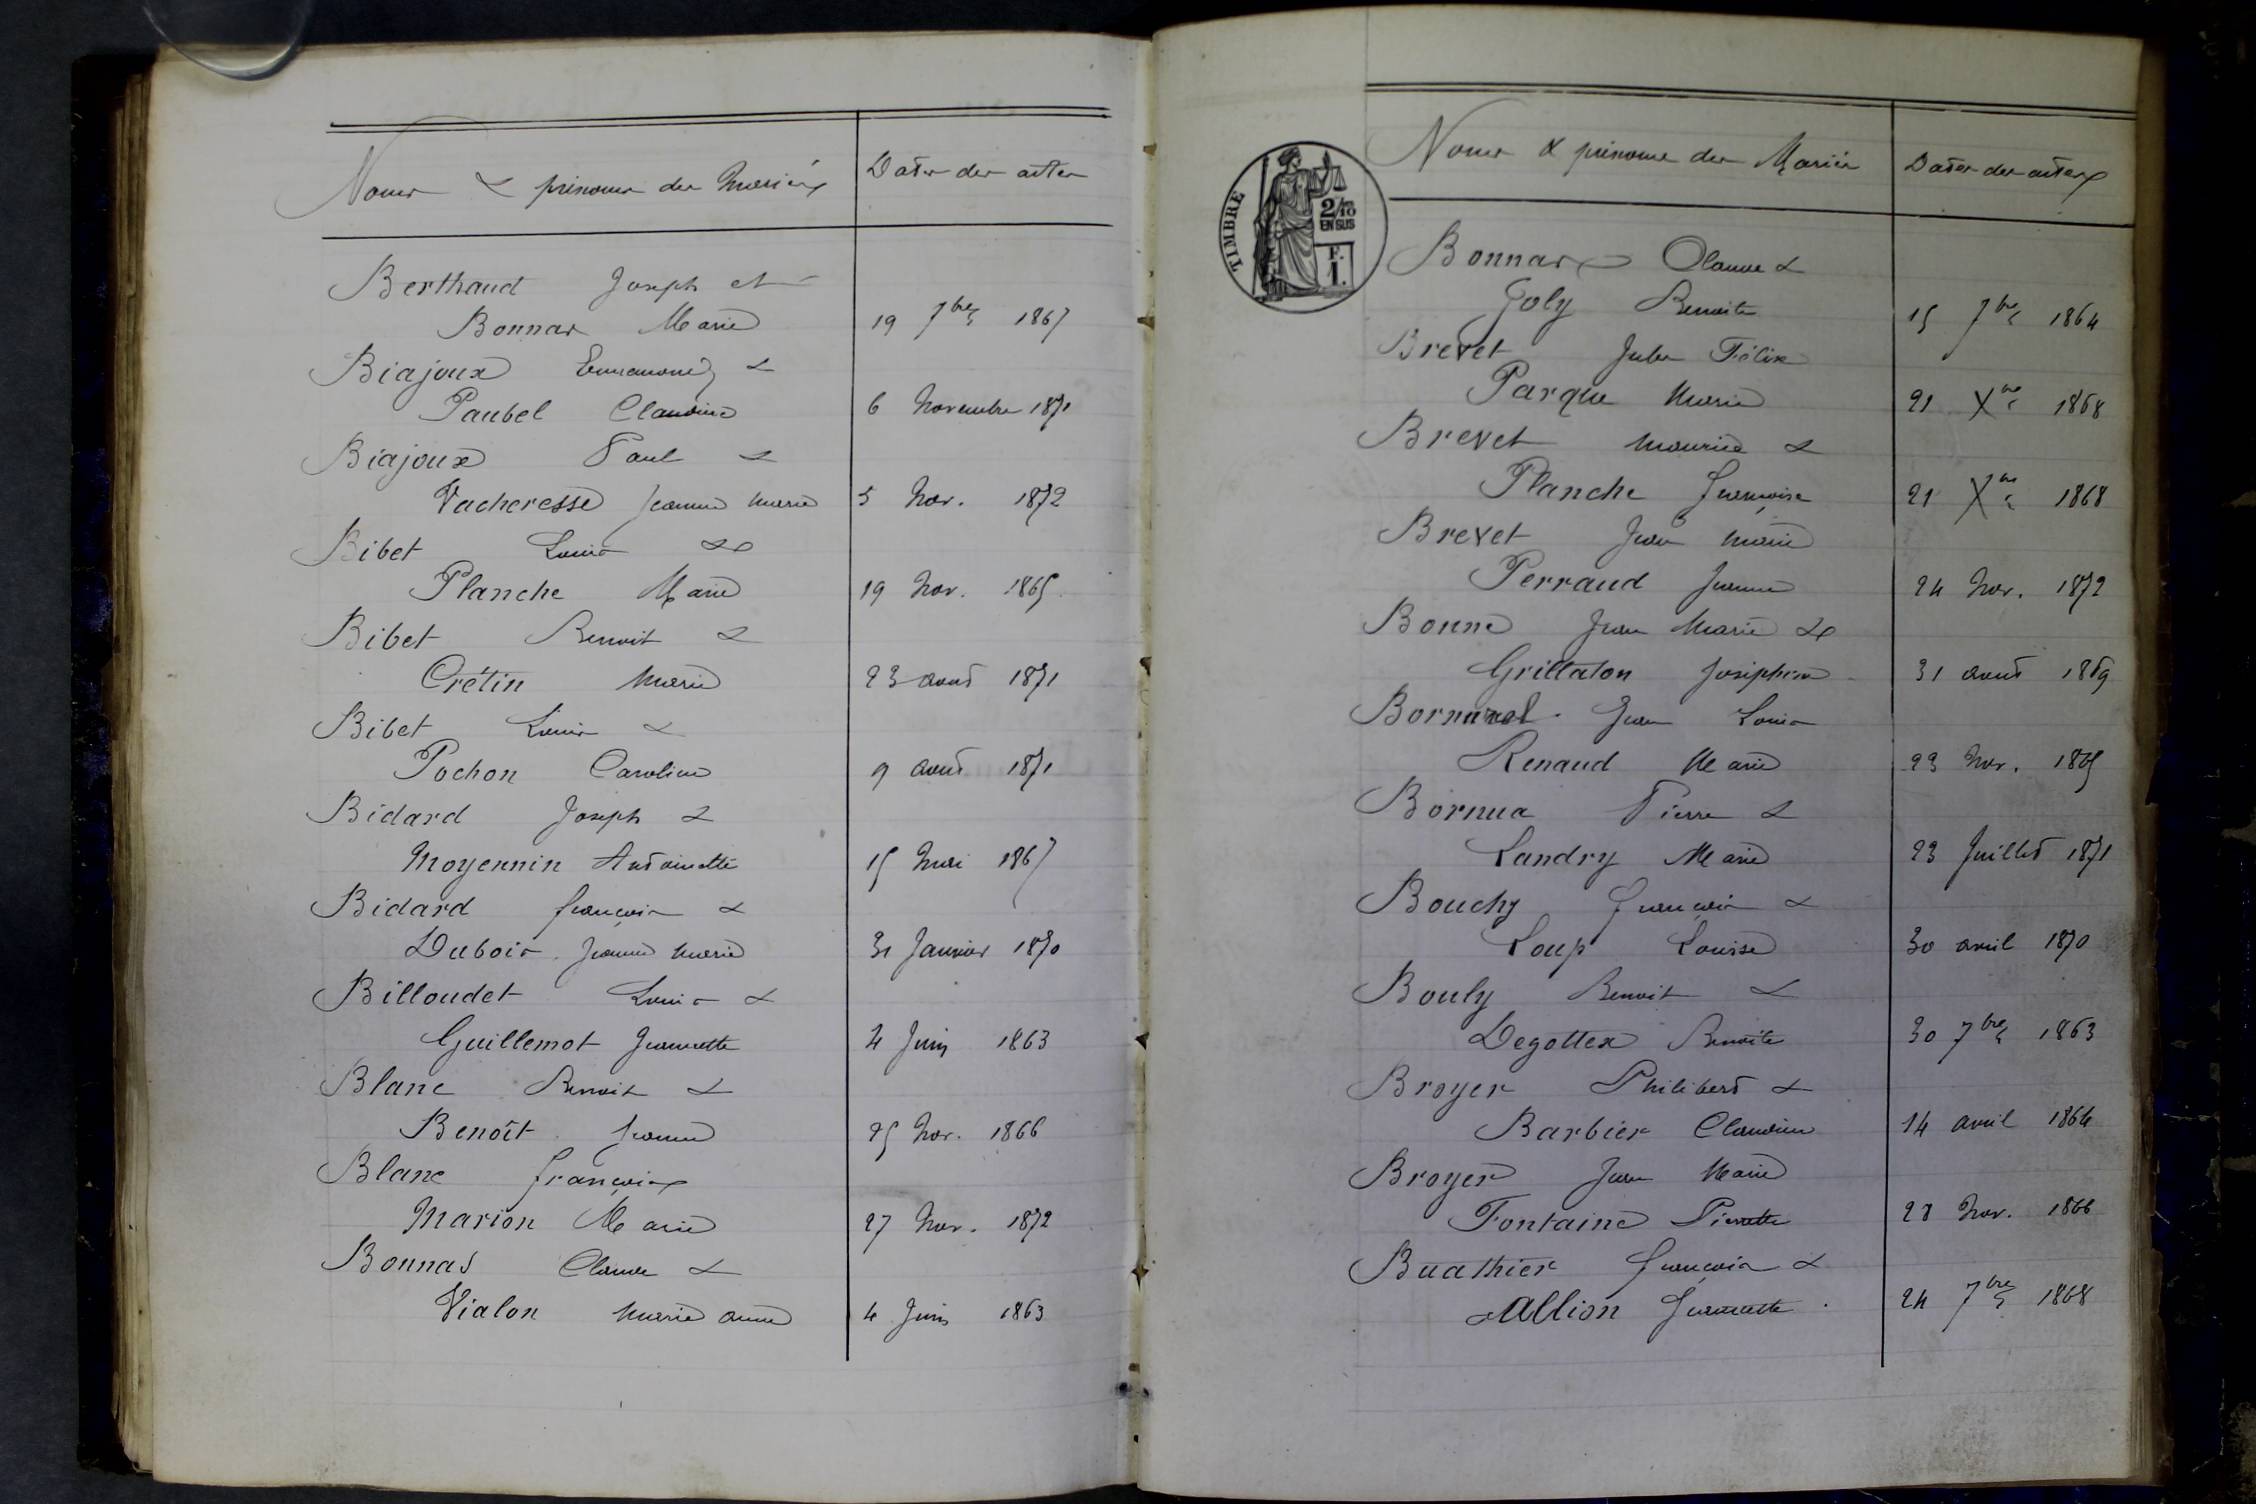 Noms & prénoms des Mariés
Dates des actes
Berthaud Joseph et
Bonnas Marie
19 7bre 1867
Biajoux Emmanuel &
Paubel Claudine
6 Novembre 1871
Biajoux Paul &
Vacheresse Jeanne Marie
5 Nov. 1872
Bibet Louis &
Planche Marie
19 Nov. 1865
Bibet Benoit &
Crétin Marie
23 août 1871
Bibet Louis &
Pochon Caroline
9 août 1871
Bidard Joseph &
Moyennin Antoinette
15 Mai 1867
Bidard françois &
Dubois Jeanne Marie
31 Janvier 1870
Billoudet Louis &
Guillemot Jeannette
4 Juin 1863
Blanc Benoit &
Benoît Jeanne
25 Nov. 1866
Blanc françois
Marion Marie
27 Nov. 1872
Bonnas Claude &
Vialon Marie anne
4 Juin 1863
TIMBRE
2/10
EN SUS
F.
1.
Noms & prénoms des Mariés
Dates des actes
Bonnas Claude &
Goly Benoite
15 7bre 1864
Brevet Jules Félix
Parque Marie
21 Xbre 1868
Brevet Maurice &
Planche Françoise
21 Xbre 1868
Brevet Jean Marie
Perraud Jeanne
24 Nov. 1872
Bonne Jean Marie &
Grillaton Joséphine
31 août 1869
Bornarel Jean Louis
Renaud Marie
23 Nov. 1865
Bornua Pierre &
Landry Marie
23 Juillet 1871
Bouchy François &
Loup Louise
30 avril 1870
Bouly Benoit &
Degottex Benoîte
30 7bre 1863
Broyer Philibert &
Barbier Claudine
14 avril 1864
Broyer Jean Marie
Fontaine Pierrette
28 Nov. 1866
Buathier François &
Allion Jeannette
24 7bre 1868